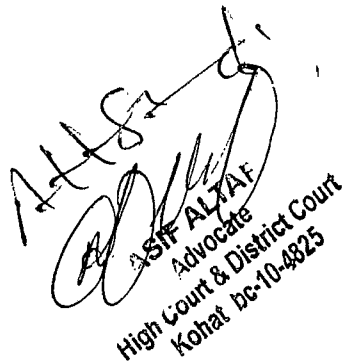 Attested
ASIF ALTAF
Advocate
High Court & District Court
Kohat bc-10-4825